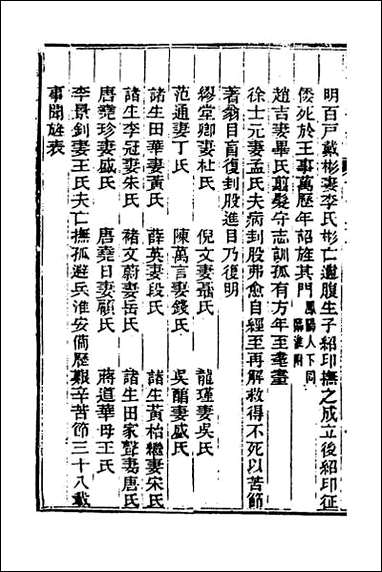 明百戸戴彬妻李氏彬亡遺腹生子紹印撫之成立後紹印征
倭死於王事萬歷年詔旌其門鳳陽人下同
趙吉妻畢氏翦髮守志訓孤有方年至耄耋
徐士元妻孟氏夫病刲股弗愈自經至再解救得不死以苦節
著翁目盲復刲股進目乃復明
繆堂卿妻杜氏　倪文妻聶氏　龍瑾妻吳氏
范通妻丁氏　陳萬言妻錢氏　吳醕妻盛氏
諸生田華妻黃氏　薛英妻段氏　諸生黃枱繼妻宋氏
諸生李冠妻朱氏　褚文蔚妻岳氏　諸生田家聲妻唐氏
唐堯珍妻戚氏　唐堯日妻顧氏　蔣道華母王氏
李景釗妻王氏夫亡撫孤避兵淮安僃歷艱辛苦節三十八載
事聞旌表